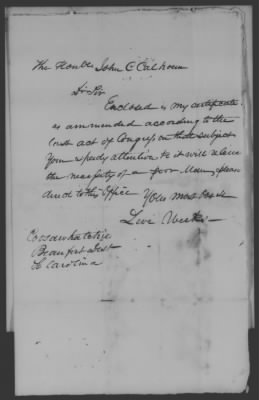 The Honble John C Calhoun
Dr Sir
Enclosed is my certificate
as ammended according to the
last act of Congress on that subject
Your speedy attention to it will releive
the necessity of a poor Man, please
direct to this Office Yours most
Levi
Beaufort Dist
So Carolina